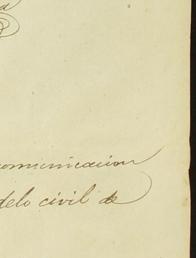 comunicacion
delo civil de